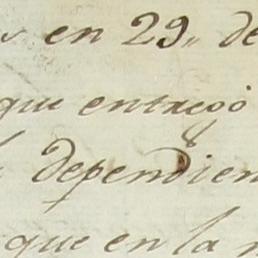 en 29,, de
que entregó
dependien
que en la